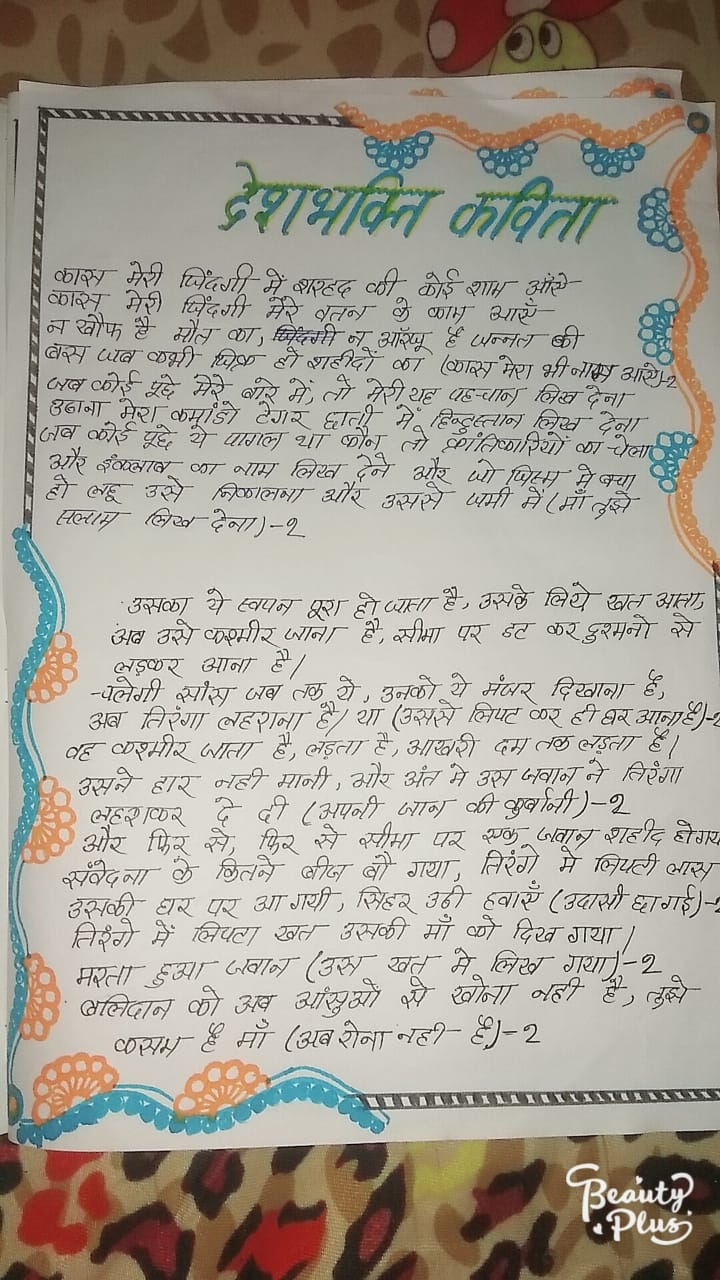 देशभक्ति कविता
कास मेरी जिंदगी में शरहद की कोई शाम आऐ
कास मेरी जिंदगी मेरे वतन के काम आऐ
न खौफ है मौत का, जिंदगी न आँरजू है जन्नत की
बस जब कभी जिक्र हो शहीदों का (कास मेरा भी नाम आऐ)-2
जब कोई पूछे मेरे बारे में, तो मेरी यह पहचान लिख देना
उठाना मेरा कमांडो टैगर छाती में हिन्दुस्तान लिख देना
जब कोई पूछे ये पागल था कौन तो क्रांतिकारियों का चेला
और इंकलाब का नाम लिख देने और जो जिस्म मे बचा
हो लहू उसे निकालना और उससे जमी में (माँ तुझे
सलाम लिख देना)-2
उसका ये स्वपन पूरा हो जाता है, उसके लिये खत आता,
अब उसे कश्मीर जाना है, सीमा पर डट कर दुश्मनो से
लड़कर आना है।
चलेगी सांस जब तक ये, उनको ये मंजर दिखाना है,
अब तिरंगा लहराना है। या (उससे लिपट कर ही घर आना है)-2
वह कश्मीर जाता है, लड़ता है, आखरी दम तक लड़ता है।
उसने हार नही मानी, और अंत मे उस जवान ने तिरंगा
लहराकर दे दी (अपनी जान की कुर्बानी)-2
और फिर से, फिर से सीमा पर एक जवान शहीद हो गय
संवेदना के कितने बीज बौ गया, तिरंगे मे लिपटी लास
उसकी घर पर आ गयी, सिहर उठी हवाएँ (उदासी छा गई)-2
तिरंगे में लिपटा खत उसकी माँ को दिख गया।
मरता हुआ जवान (उस खत मे लिख गया)-2
बलिदान को अब आंसुओं से खोना नही है, तुझे
कसम है माँ (अब रोना नही है)-2
Beauty
Plus